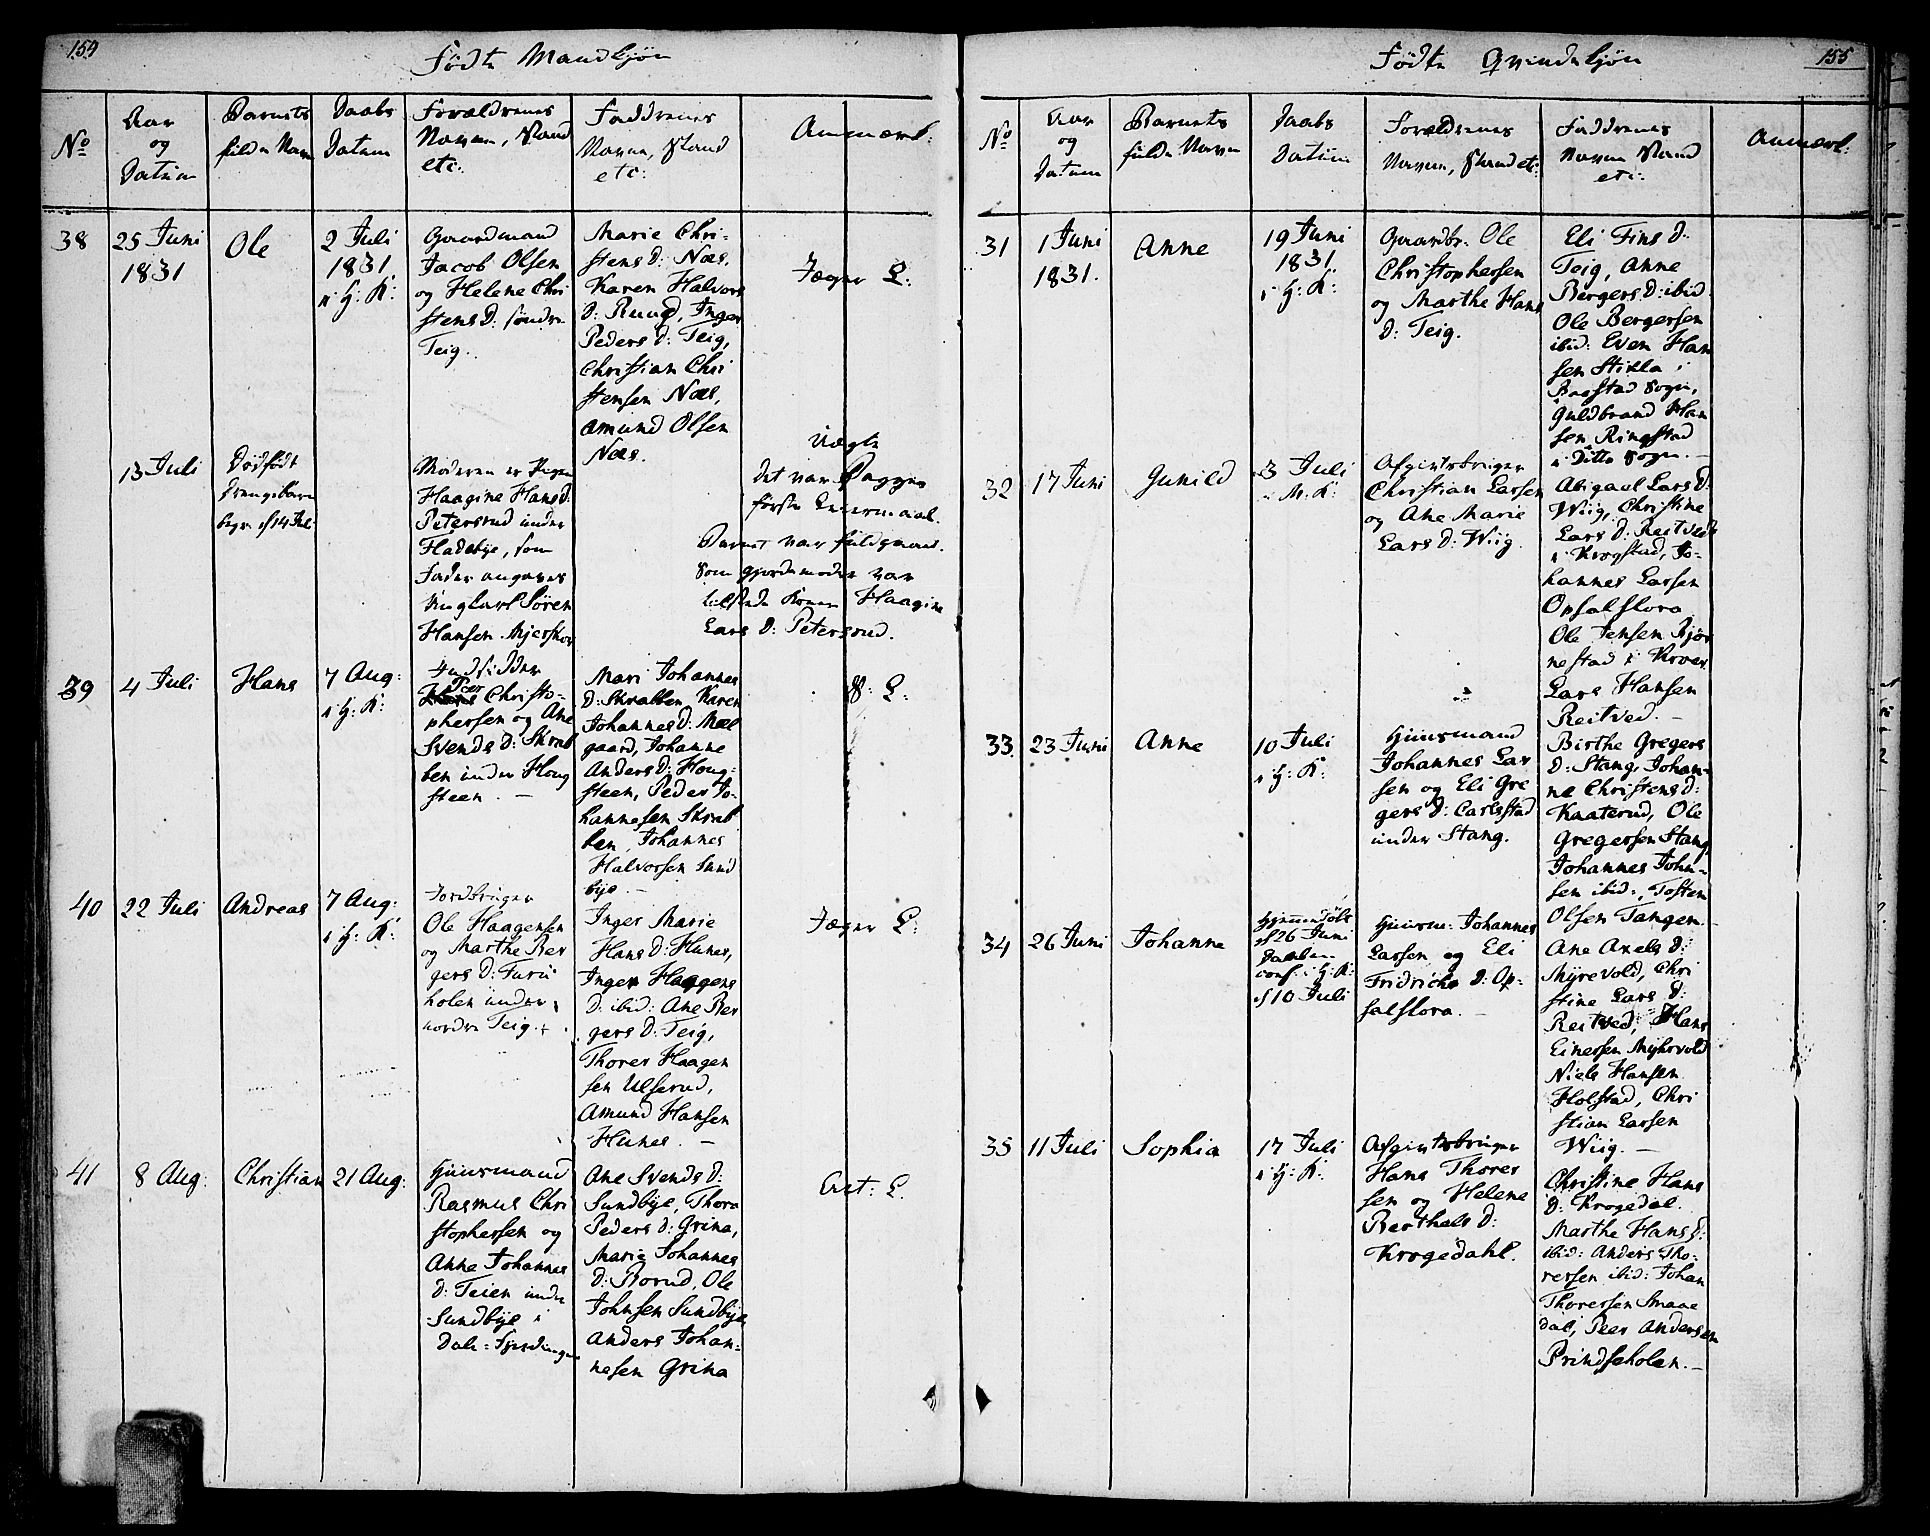 154
Fødte Mandkjøn
No
Aar
og
Datum
Barnets
fulde Navn
Daabs
Datum
Forældrenes
Navne, Stand
etc:
Faddrenes
Navne, Stand
etc:
Anmærk:
38
25 Juni
1831
Ole
2 Juli
1831
i H: K:
Gaardmand
Jacob Olsen
og Helene Chri
stens D: søndre
Teig.
Marie Chri-
stens D: Næs.
Karen Halvors
D: Ruud, Inger
Peders D: Teig,
Christian Chri
stensen Næs,
Amund Olsen
Næs.
Jæger L:
13 Juli
Dødfødt
Drengebarn
begr. d 14 Jul:
Moderen er Pigen
Haagine Hans D:
Petersrud under
Fladebye, som
Fader angaves
Ungkarl Søren
Hansen Mjerskov
Uægte
det var Begges
første Leiermaal.
Barnet var fuldbaaret.
Som gjordemoder var
tilstede Konen Haagine
Lars D: Petersrud.
39
4 Juli
Hans
7 Aug:
i H: K:
Indsidder
Peer Christo-
phersen og Ane
Svends D: Skrab
ben under Houg
steen. —
Mari Johannes
D: Skrabben, Karen
Johannes D: Mæl
gaard, Johanne
Anders D: Houg-
steen, Peder Jo-
hannesen Skrab
ben, Johannes
Halvorsen Sund
bye. —
S: L:
40
22 Juli
Andreas
7 Aug:
i H: K:
Jordbruger
Ole Haagensen
og Marthe Ber
gers D: Furu
holen under
nordre Teig.
Inger Marie
Hans D: Hunes,
Inger Haagens
D: ibid: Ane Ber
gers D: Teig,
Thorer Haagen
sen Ulserud,
Amund Hansen
Hunes. —
Jæger L:
41
8 Aug:
Christian
21 Aug:
Huusmand
Rasmus Chri
stophersen og
Anne Johannes
D: Teien under
Sundbye i
Dale-Fjerdingen
Ane Svends D:
Sundbye, Thora
Peders D: Grina,
Marie Johannes
D: Borud, Ole
Johnsen Sundbye
Anders Johan-
nesen Grina
Art: L.
155
Fødte Qvindekjøn
No
Aar
og
Datum
Barnets
fulde Navn
Daabs
Datum
Forældrenes
Navne, Stand etc:
Faddrenes
Navne Stand
etc:
Anmærk:
31
1 Juni
1831.
Anne
19 Juni
1831
i H: K:
Gaardbr: Ole
Christophersen
og Marthe Hans
D: Teig.
Eli Fins D:
Teig, Anne
Bergers D: ibid.
Ole Bergersen
ibid: Even Han
sen Stikla i
Bagstad Sogn,
Guldbrand Han
sen Ringstad
i Ditto Sogn. —
32
17 Juni
Gunild
3 Juli
i M: K:
Afgiftsbruger
Christian Larsen
og Ane Marie
Lars D: Wiig.
Abigael Lars D:
Wiig, Christine
Lars D: Restvedt
i Krogstad, Jo-
hannes Larsen
Opsalflora
Ole Jensen Bjør
nestad i Kroer
Lars Hansen
Reitved. —
33
23 Juni
Anne
10 Juli
i H: K:
Huusmand
Johannes Lar
sen og Eli Gre
gers D: Carlsstad
under Stang.
Birthe Gregers
D: Stang, Johan-
ne Christens D:
Kaaterud, Ole
Gregersen Stang
Johannes John-
sen ibid:, Tosten
Olsen Tangen.
34
26 Juni
Johanne
Hjemmedøbt
d 26 Juni
Daaben
conf. i H: K:
d 10 Juli
Huusm: Johannes
Larsen og Eli
Fridrichs D: Op-
salflora. —
Ane Axels D:
Myrevold, Chri
stine Lars D:
Reitved, Hans
Einersen Myhrvold
Niels Hansen
Holstad, Chri
stian Larsen
Wiig. —
35
11 Juli
Sophia
17 Juli
i H: K:
Afgiftsbruger
Hans Thorer
sen og Helene
Berthels D:
Krogedahl.
Christine Hans
D: Krogedal.
Marthe Hans D:
ibid: Anders Tho-
rersen ibid: Johan
Thoressen Smaae
dal, Peer Andersen
Prindseholen. —